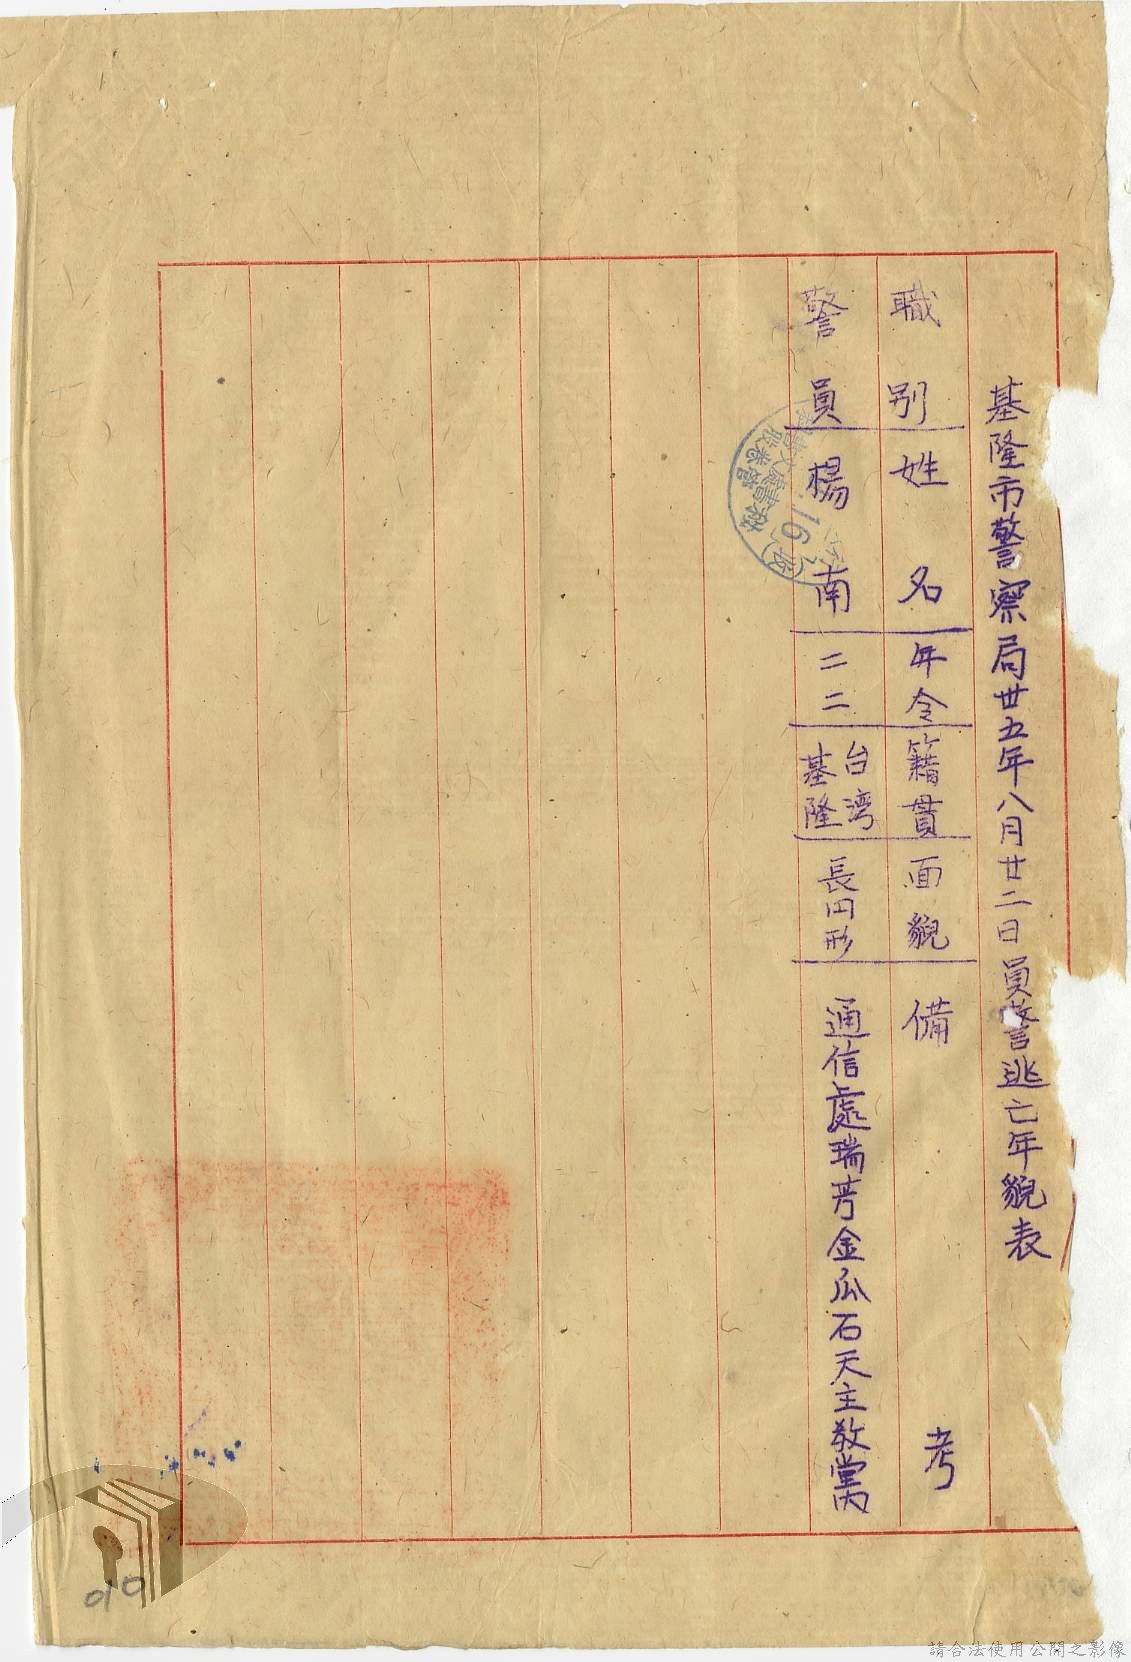 基隆市警察局丗五年八月廿二日員警逃亡年貌表
職別 姓名 年令 籍貫 面貌 備考
警員 楊南 二二 台湾基隆 長円形 通信處瑞芳金瓜石天主教堂內
16
010
請合法使用公開之影像